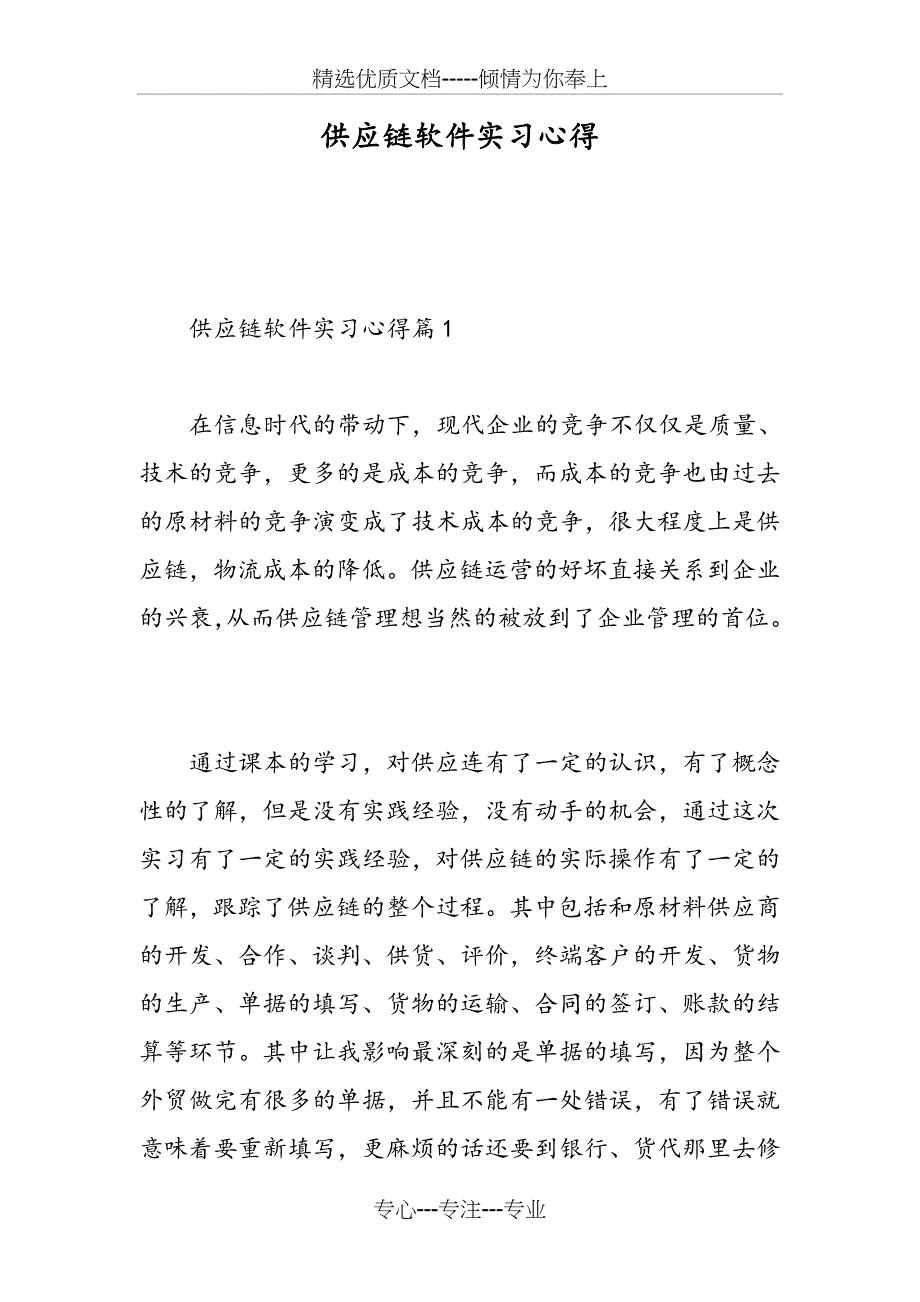 精选优质文档-----倾情为你奉上
供应链软件实习心得
供应链软件实习心得篇1
在信息时代的带动下，现代企业的竞争不仅仅是质量、
技术的竞争，更多的是成本的竞争，而成本的竞争也由过去
的原材料的竞争演变成了技术成本的竞争，很大程度上是供
应链，物流成本的降低。供应链运营的好坏直接关系到企业
的兴衰,从而供应链管理想当然的被放到了企业管理的首位。
通过课本的学习，对供应连有了一定的认识，有了概念
性的了解，但是没有实践经验，没有动手的机会，通过这次
实习有了一定的实践经验，对供应链的实际操作有了一定的
了解，跟踪了供应链的整个过程。其中包括和原材料供应商
的开发、合作、谈判、供货、评价，终端客户的开发、货物
的生产、单据的填写、货物的运输、合同的签订、账款的结
算等环节。其中让我影响最深刻的是单据的填写，因为整个
外贸做完有很多的单据，并且不能有一处错误，有了错误就
意味着要重新填写，更麻烦的话还要到银行、货代那里去修
专心---专注---专业